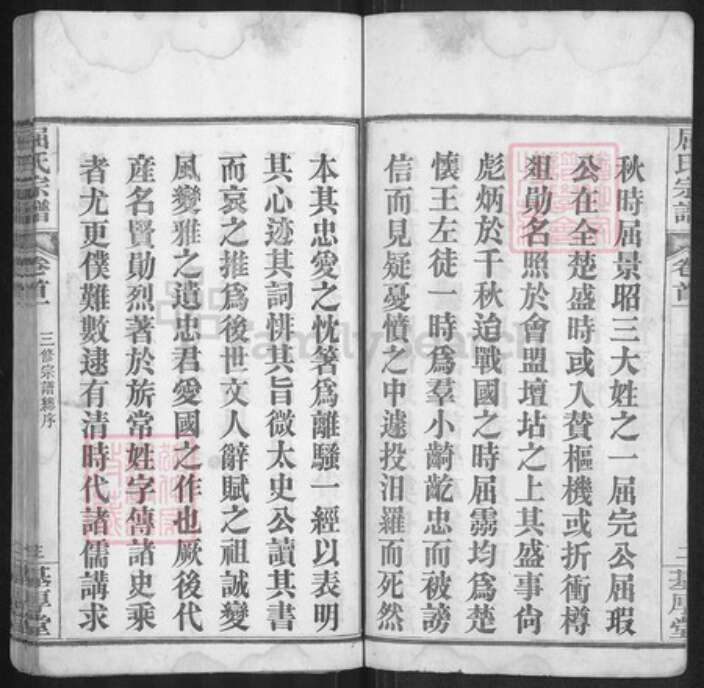 秋時屈景昭三大姓之一屈完公屈瑕
公在全楚盛時或入贊樞機或折衝樽
俎勛名照於會盟壇坫之上其盛事尙
彪炳於千秋迨戰國之時屈靈均爲楚
懷王左徒一時爲羣小齮齕忠而被謗
信而見疑憂憤之中遽投汨羅而死然
本其忠愛之忱箸爲離騷一經以表明
其心迹其詞悱其旨微太史公讀其書
而哀之推爲後世文人辭賦之祖誠變
風變雅之遺忠君愛國之作也厥後代
產名賢勛烈著於旂常姓字傳諸史乘
者尤更僕難數逮有清時代諸儒講求
屈氏宗譜
卷首一
三修宗譜總序
三
基厚堂